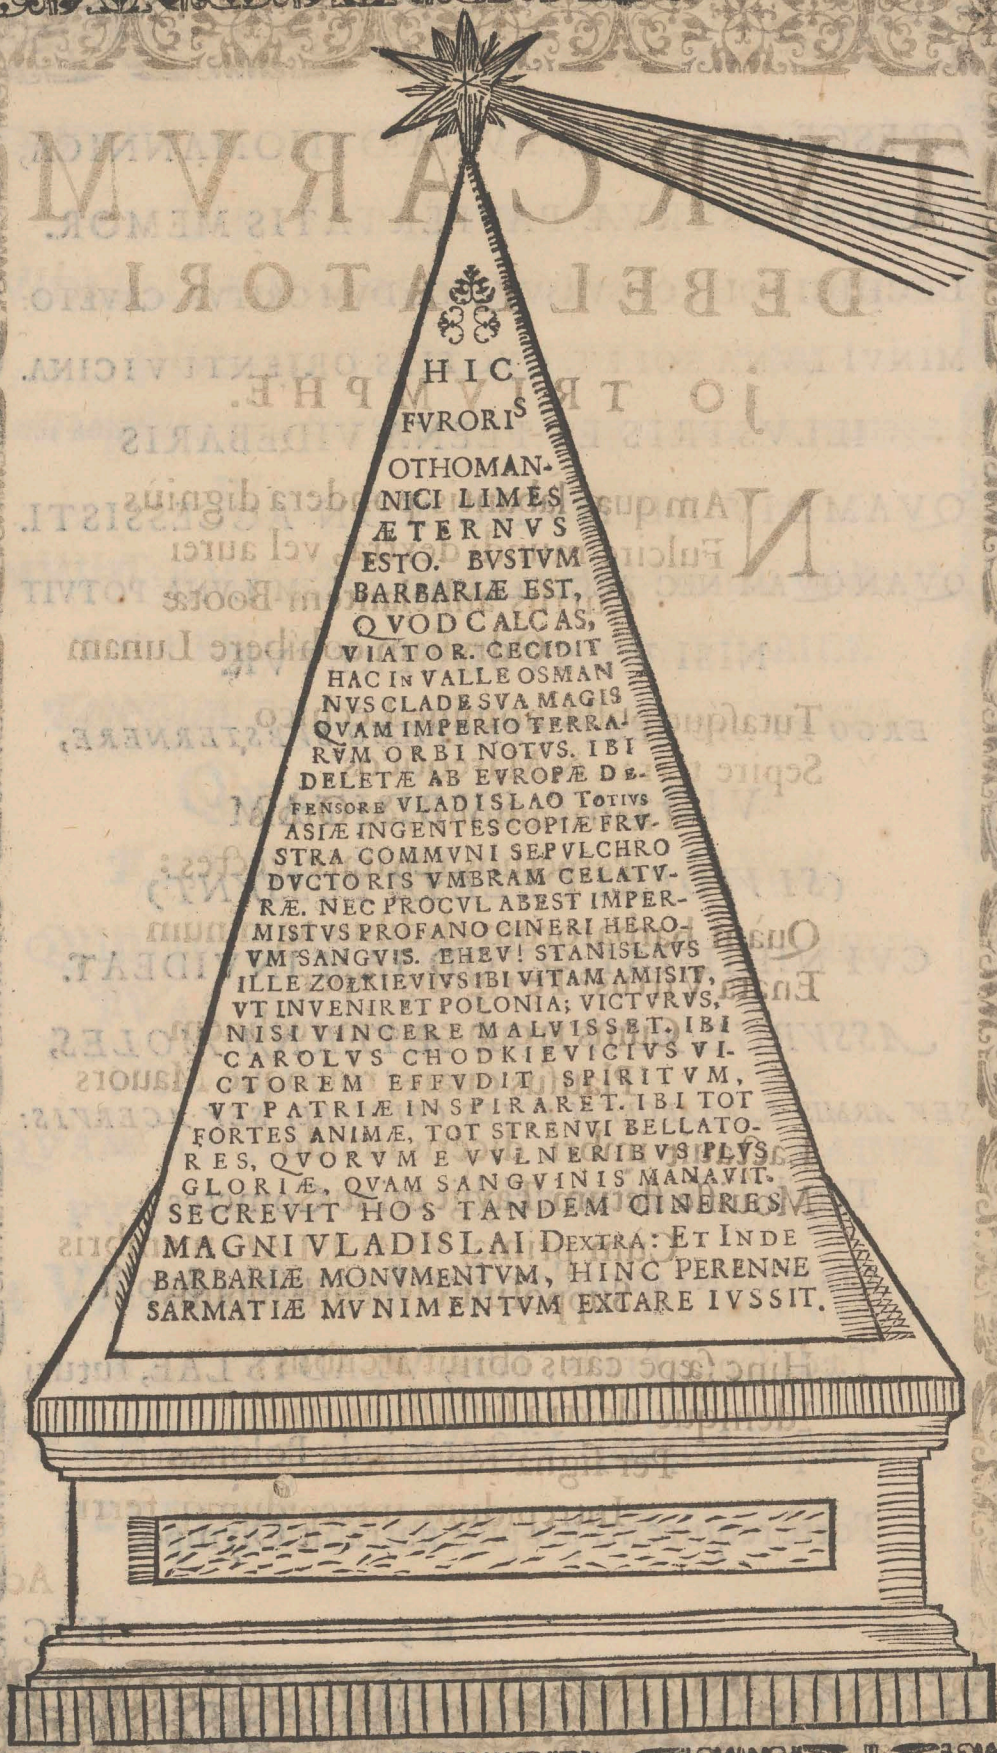 HIC
FVRORIS
OTHOMAN-
NICI LIMES
ÆTERNVS
ESTO. BVSTVM
BARBARIÆ EST,
QVOD CALCAS,
VIATOR. CECIDIT
HAC IN VALLE OSMAN
NVS CLADE SVA MAGIS
QVAM IMPERIO TERRA-
RVM ORBI NOTVS. IBI
DELETÆ AB EVROPÆ DE-
FENSORE VLADISLAO TOTIVS
ASIÆ INGENTES COPIÆ FRV-
STRA COMMVNI SEPVLCHRO
DVCTORIS VMBRAM CELATV-
RÆ. NEC PROCVL ABEST IMPER-
MISTVS PROFANO CINERI HERO-
VM SANGVIS. EHEV! STANISLAVS
ILLE ZOŁKIEVIVS IBI VITAM AMISIT,
VT INVENIRET POLONIA; VICTVRVS,
NISI VINCERE MALVISSET. IBI
CAROLVS CHODKIEVICIVS VI-
CTOREM EFFVDIT SPIRITVM,
VT PATRIÆ INSPIRARET. IBI TOT
FORTES ANIMÆ, TOT STRENVI BELLATO-
RES, QVORVM E VVLNERIBVS PLVS
GLORIÆ, QVAM SANGVINIS MANAVIT.
SECREVIT HOS TANDEM CINERES
MAGNI VLADISLAI DEXTRA: ET INDE
BARBARIÆ MONVMENTVM, HINC PERENNE
SARMATIÆ MVNIMENTVM EXTARE IVSSIT.